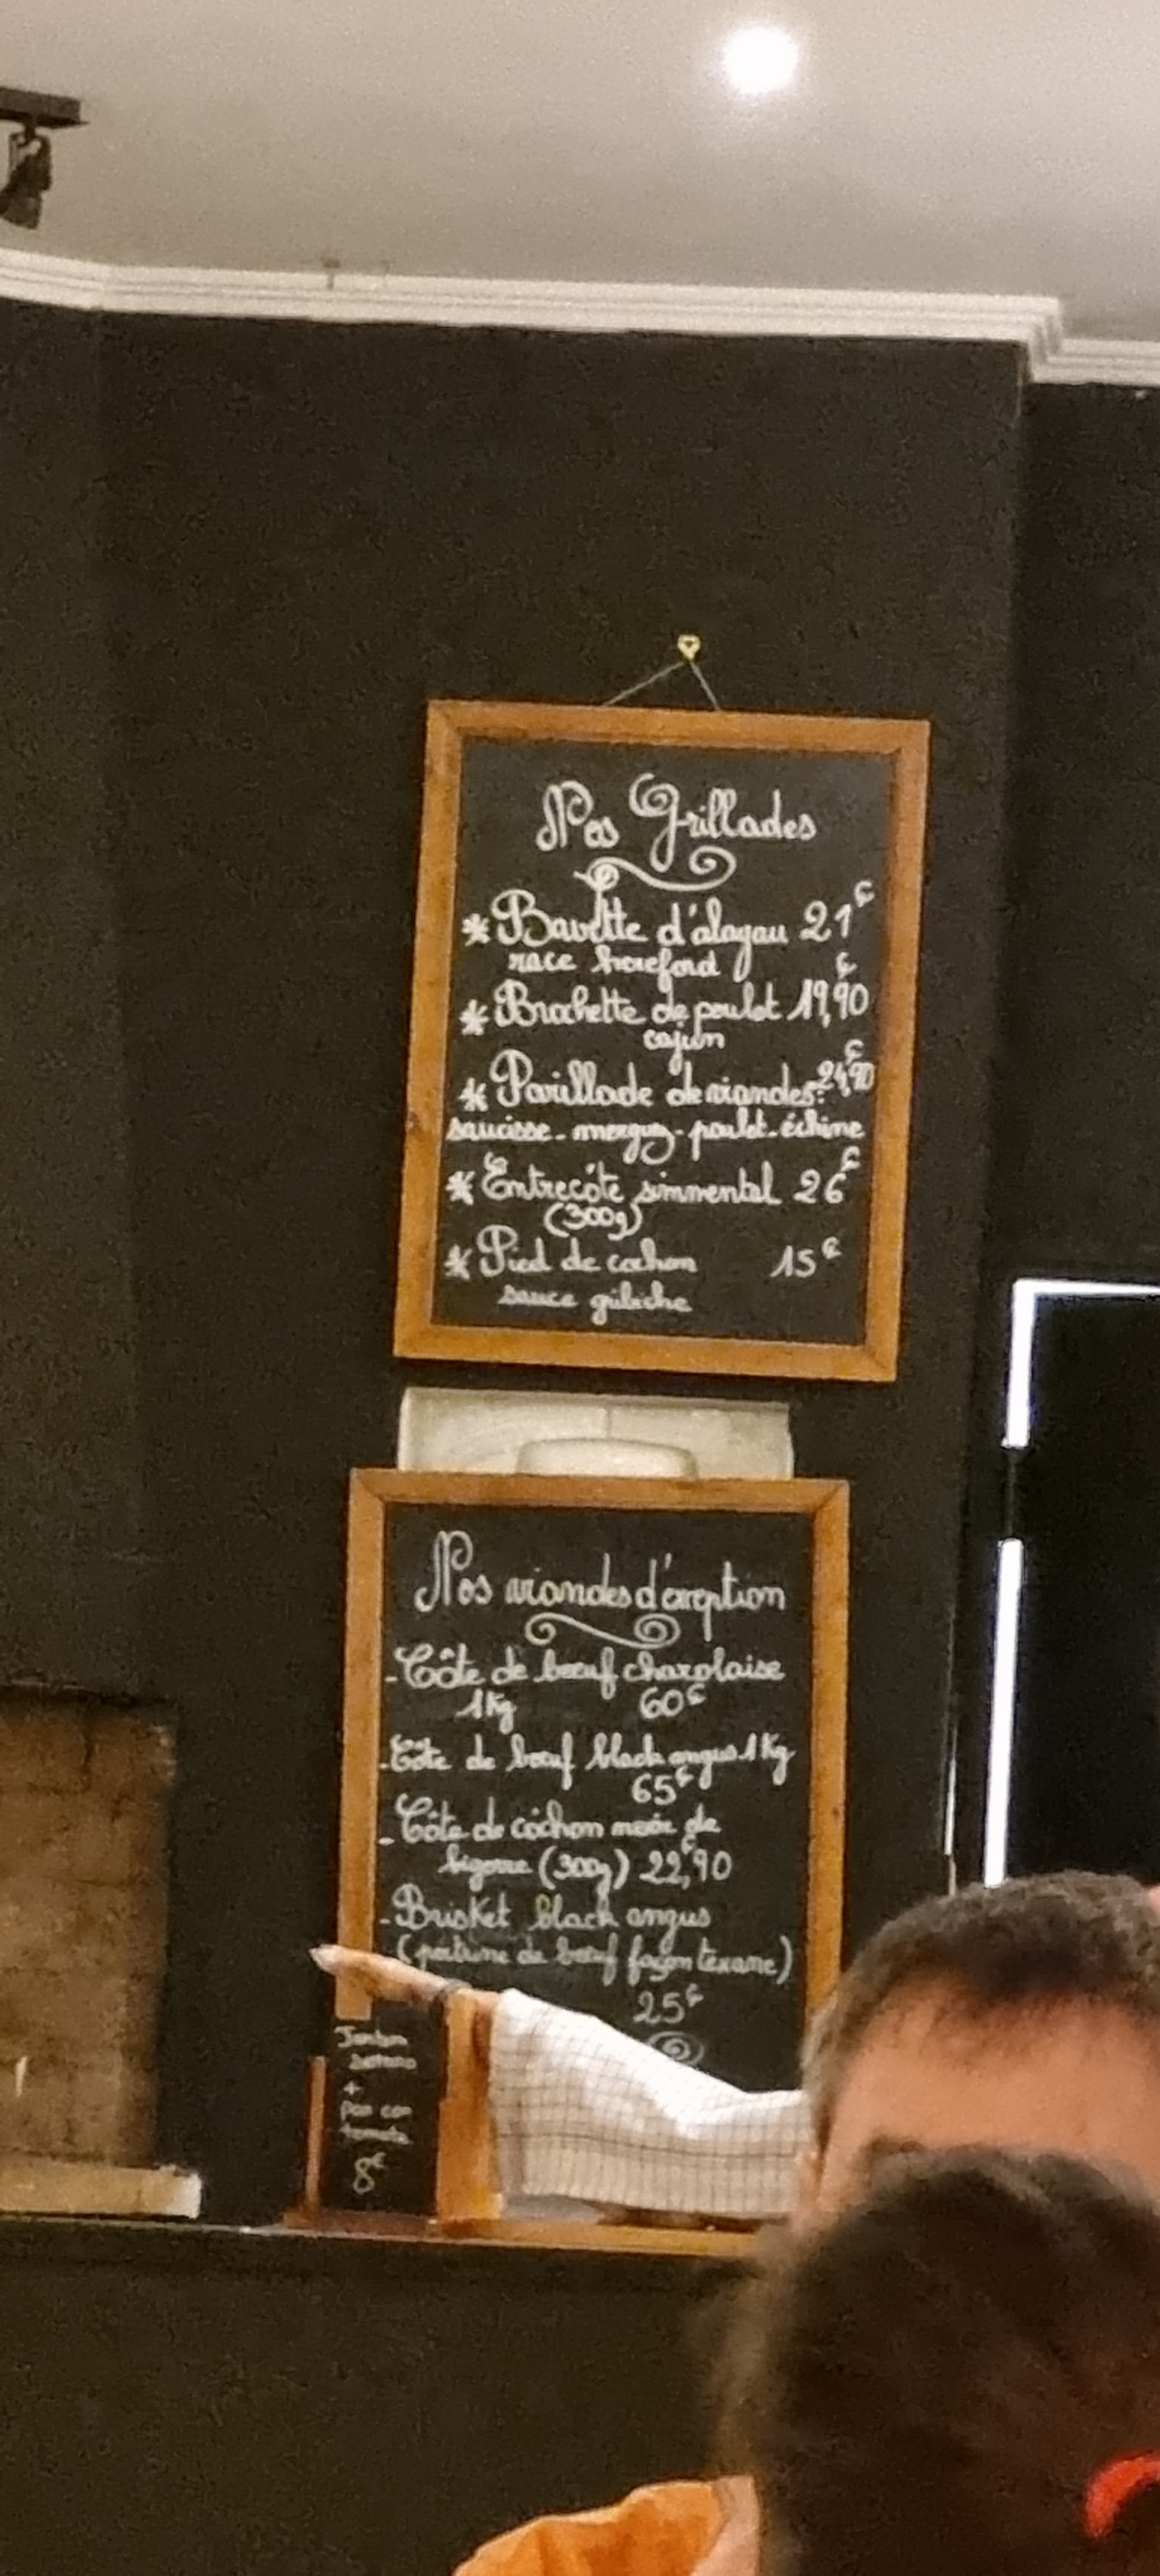 Nos Grillades
* Bavette d'aloyau 21€
race hereford
* Brochette de poulet 19,90€
cajun
* Parillade de viandes: 24,90€
saucisse - merguez - poulet - échine
* Entrecôte simmental 26€
(300g)
* Pied de cochon 15€
sauce gribiche
Nos viandes d'exeption
- Côte de bœuf charolaise
1Kg 60€
- Côte de bœuf black angus 1Kg
65€
- Côte de cochon noir de
bigorre (300g) 22,90€
- Brisket black angus
(poitrine de bœuf façon texane)
25€
Jambon
Serrano
+
Pan con
8€